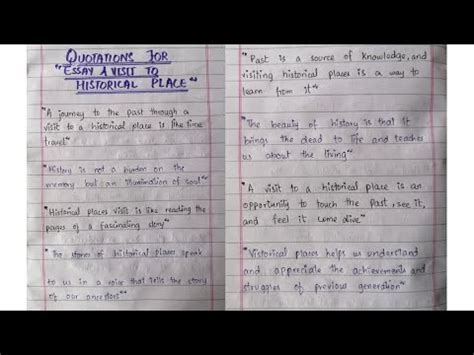 QUOTATIONS FOR
"ESSAY A VISIT TO
HISTORICAL PLACE"
"A journey to the past through a
visit to a historical place is like time
travel"
"History is not a burden on the
memory but an illumination of soul"
"Historical places visit is like reading the
pages of a fascinating story"
"The stones of historical places speak
to us in a voice that tells the story
of our ancestors"
"Past is a source of knowledge, and
visiting historical places is a way to
learn from it"
"The beauty of history is that it
brings the dead to life and teaches
us about the living"
"A visit to a historical place is an
opportunity to touch the past, see it,
and feel it come alive"
"Historical places helps us understand
and appreciate the achievements and
struggles of previous generation"